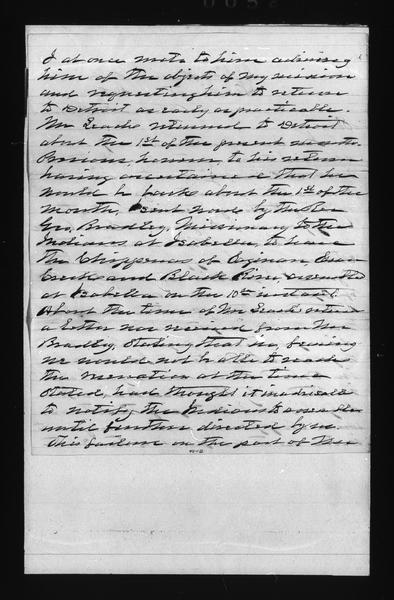 I at once wrote to him advising
him of the objects of my mission
and requesting him to return
to Detroit as early as practicable.
Mr Leach returned to Detroit
about the 1st of the present month.
Previous, however, to his return
having ascertained that he
would be back about the 1st of the
month, I sent word by the Rev
Geo. Bradley, Missionary to the
Indians at Isabella, to have
the Chippewas of Saginaw, Swan
Creek and Black River, assembled
at Isabella on the 10th instant.
About the time of Mr Leach return
a letter was received from Mr
Bradley, stating that he, fearing
we would not be able to reach
the reservation at the time
stated, had thought it inadvisable
to notify the Indians to assemble
until further directed by us.
This failure on the part of Mr